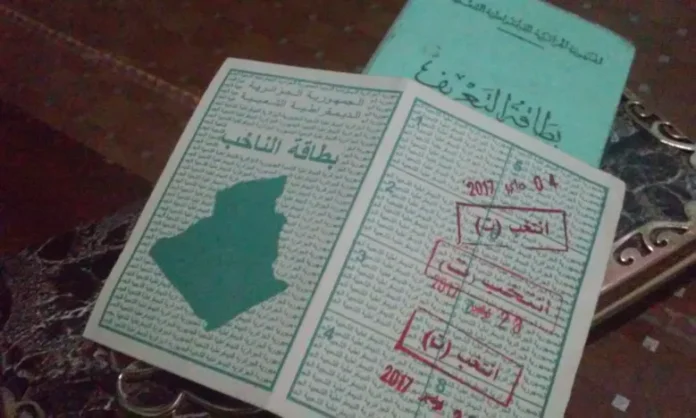 الجمهورية الجزائرية
الديمقراطية الشعبية
بطاقة الناخب
الجمهورية الجزائرية الديمقراطية الشعبية
بطاقة التعريف
1
2
3
4
6
8
04 ماي 2017
انتخب (ت)
انتخب (ت)
23 نوفمبر 2017
انتخب (ت)
2017